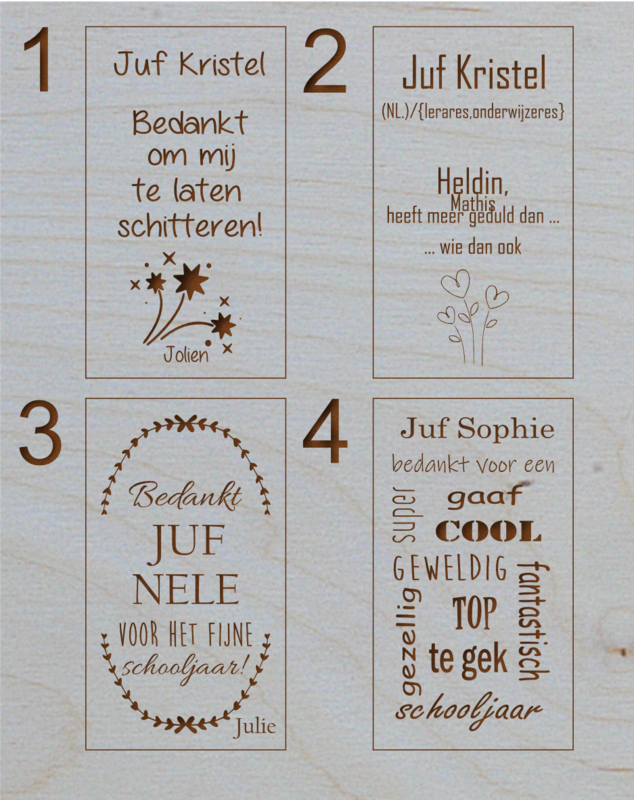 1
Juf Kristel
Bedankt
om mij
te laten
schitteren!
Jolien
2
Juf Kristel
(NL.)/{lerares,onderwijzeres}
Heldin,
Mathis
heeft meer geduld dan ...
... wie dan ook
3
Bedankt
JUF
NELE
VOOR HET FIJNE
schooljaar!
Julie
4
Juf Sophie
bedankt voor een
super
gaaf
COOL
GEWELDIG
fantastisch
gezellig
TOP
te gek
schooljaar